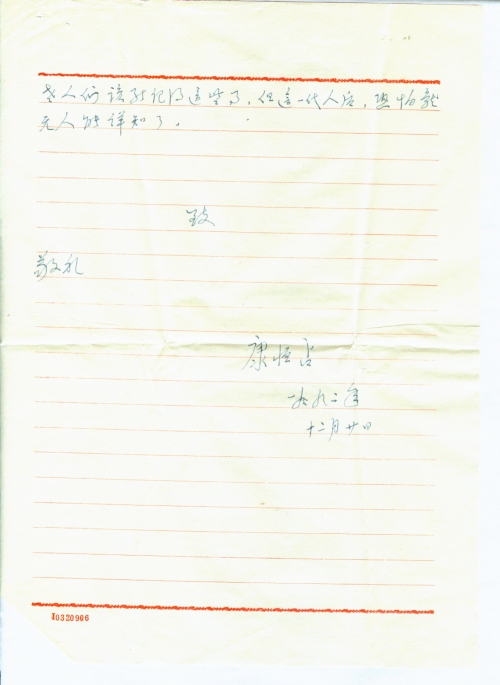 老人们该能记得这些了，但这一代人后，恐怕就
无人能详知了。
致
敬礼
康恒占
一九九二年
十二月廿日
X0320906